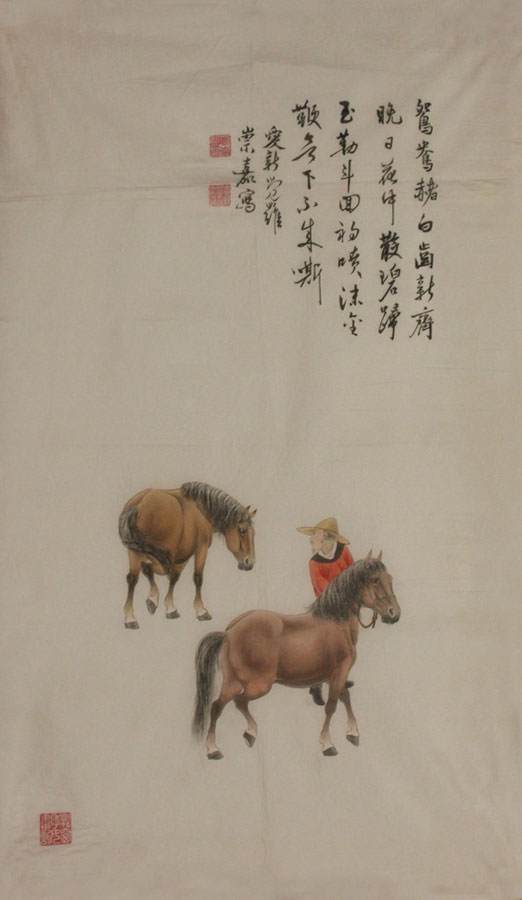 鴛鴦赭白齒新齊
晚日花中散碧蹄
玉勒斗回初噴沫金
鞭欲下不成嘶
愛新覺羅
崇嘉寫